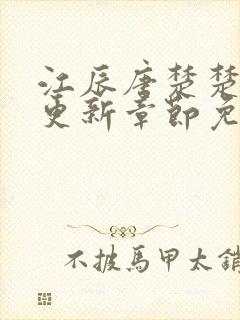 江辰唐楚楚
更新章節免
不披馬甲太銷